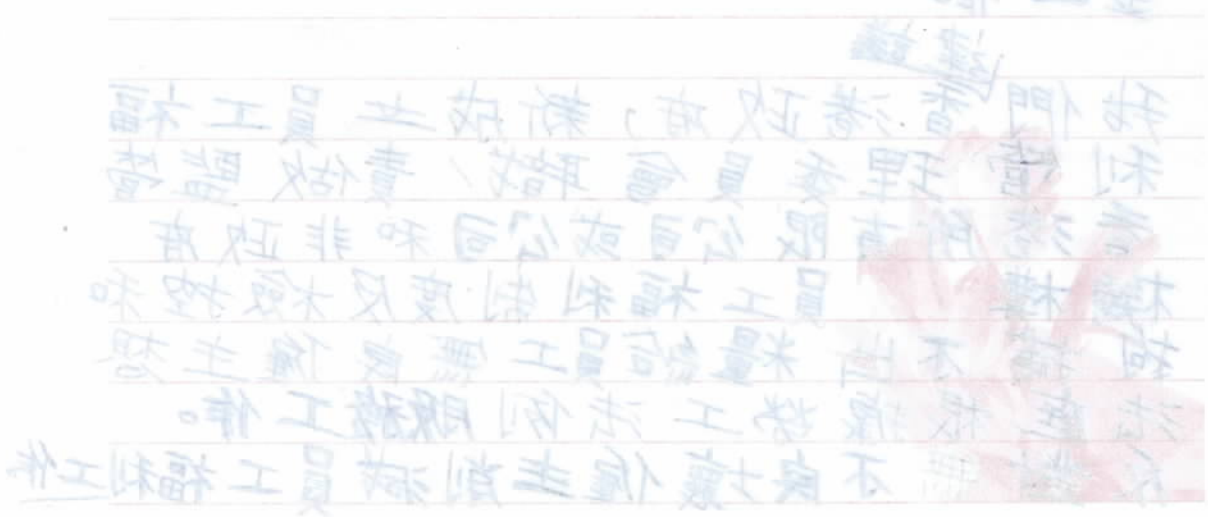 建議
我們香港政府,新成立員工福
利管理委員會職責做監管
香港所有限公司或公司和非政府
機構 員工福利制度及檢控和
不出糧給員工無良僱主
法庭根據勞工法例服務工作。
不良壞僱主削減員工福利工作